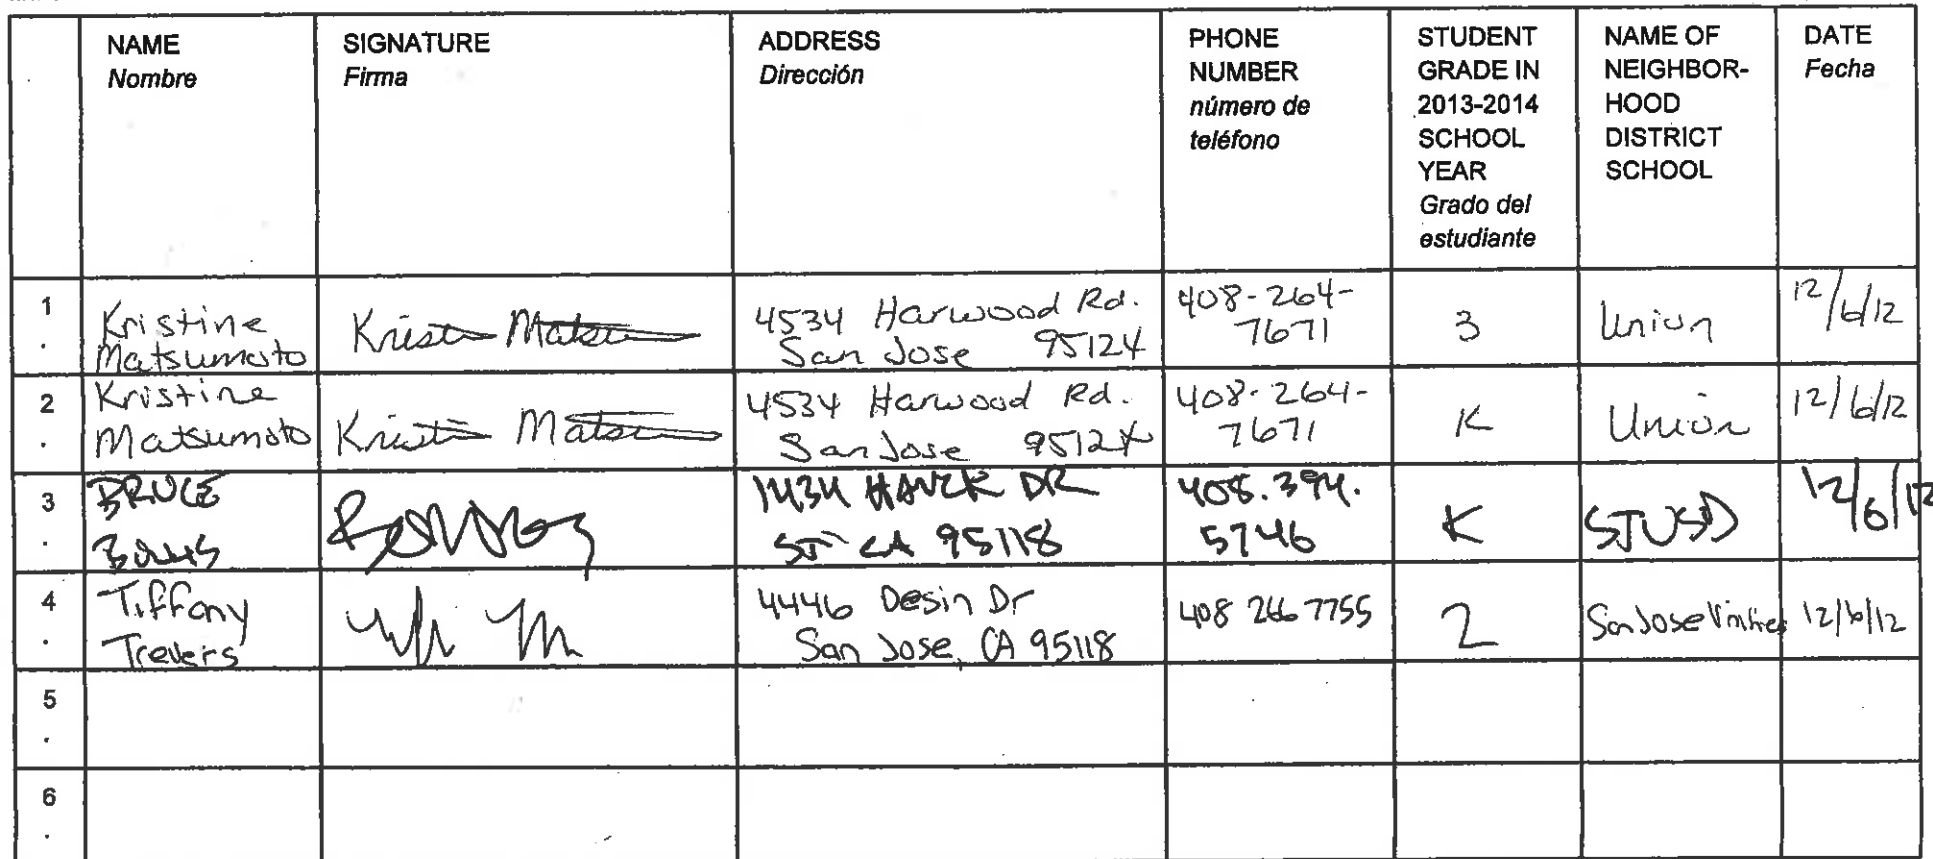 NAME
Nombre
SIGNATURE
Firma
ADDRESS
Dirección
PHONE
NUMBER
número de
teléfono
STUDENT
GRADE IN
2013-2014
SCHOOL
YEAR
Grado del
estudiante
NAME OF
NEIGHBOR-
HOOD
DISTRICT
SCHOOL
DATE
Fecha
1.
Kristine
Matsumoto
4534 Harwood Rd.
San Jose 95124
408-264-
7671
3
Union
12/6/12
2.
Kristine
Matsumoto
4534 Harwood Rd.
San Jose 95124
408-264-
7671
K
Union
12/6/12
3.
BRUCE
1434 HAUCK DR
SJ CA 95118
408.394.
5746
K
SJUSD
12/6/12
4.
Tiffany
Travers
4446 Desin Dr
San Jose, CA 95118
408 266 7755
2
San Jose
12/6/12
5.
6.